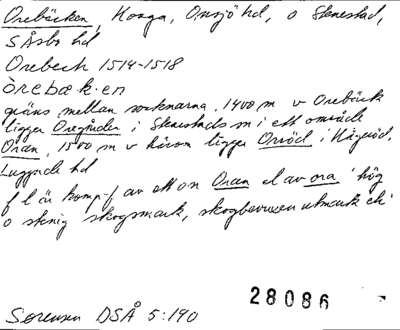 Orebäcken, Konga, Onsjö hd, o Stenestad,
S Åsbo hd
Orebech 1514-1518
òrebæk·en
gräns mellan socknarna. 1400 m v Orebäck
ligger Oregården i Stenestads sn i ett område
Oran, 1500 m v härom ligger Orröd i Kågeröd,
Luggude hd
f l är komp-f av ett on Oran el av ora 'hög
o stenig skogsmark, skogbevuxen utmark etc'
Sørensen DSÅ 5:190
28086